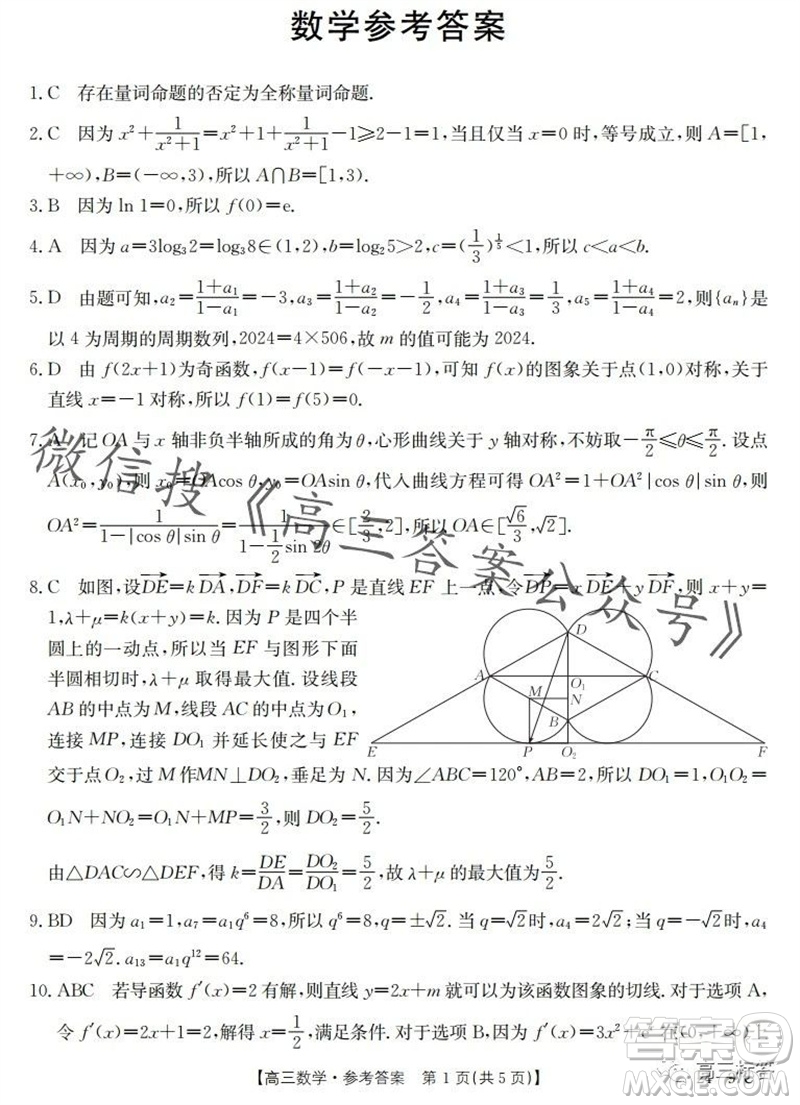 数学参考答案
1. C 存在量词命题的否定为全称量词命题.
2. C 因为 x²+1/(x²+1)=x²+1+1/(x²+1)-1≥2-1=1,当且仅当 x=0 时,等号成立,则 A=[1,
+∞),B=(-∞,3),所以 A∩B=[1,3).
3. B 因为 ln 1=0,所以 f(0)=e.
4. A 因为 a=3log₃2=log₃8∈(1,2),b=log₂5>2,c=(1/3)^(1/5)<1,所以 c<a<b.
5. D 由题可知,a₂=(1+a₁)/(1-a₁)=-3,a₃=(1+a₂)/(1-a₂)=-1/2,a₄=(1+a₃)/(1-a₃)=1/3,a₅=(1+a₄)/(1-a₄)=2,则{aₙ}是
以 4 为周期的周期数列,2024=4×506,故 m 的值可能为 2024.
6. D 由 f(2x+1)为奇函数,f(x-1)=f(-x-1),可知 f(x)的图象关于点(1,0)对称,关于
直线 x=-1 对称,所以 f(1)=f(5)=0.
7. A 记 OA 与 x 轴非负半轴所成的角为 θ,心形曲线关于 y 轴对称,不妨取-π/2≤θ≤π/2. 设点
A(x₀,y₀),则 x₀=OAcos θ,y₀=OAsin θ,代入曲线方程可得 OA²=1+OA²|cos θ|sin θ,则
OA²=1/(1-|cos θ|sin θ)=1/(1-1/2 sin 2θ)∈[2/3,2],所以 OA∈[√6/3,√2].
8. C 如图,设DE=k DA,DF=k DC,P 是直线 EF 上一点,令DP=x DE+y DF,则 x+y=
1,λ+μ=k(x+y)=k. 因为 P 是四个半
圆上的一动点,所以当 EF 与图形下面
半圆相切时,λ+μ 取得最大值. 设线段
AB 的中点为 M,线段 AC 的中点为O₁,
连接 MP,连接 DO₁ 并延长使之与 EF
D
A
O₁
C
M
N
B
E
P
O₂
F
交于点O₂,过 M 作MN⊥DO₂,垂足为 N. 因为∠ABC=120°,AB=2,所以 DO₁=1,O₁O₂=
O₁N+NO₂=O₁N+MP=3/2,则 DO₂=5/2.
由△DAC∽△DEF,得 k=DE/DA=DO₂/DO₁=5/2,故 λ+μ 的最大值为5/2.
9. BD 因为 a₁=1,a₇=a₁q⁶=8,所以 q⁶=8,q=±√2. 当 q=√2时,a₄=2√2;当 q=-√2时,a₄
=-2√2. a₁₃=a₁q¹²=64.
10. ABC 若导函数 f′(x)=2 有解,则直线 y=2x+m 就可以为该函数图象的切线. 对于选项 A,
令 f′(x)=2x+1=2,解得 x=1/2,满足条件. 对于选项 B,因为 f′(x)=3x²+
在(0,+∞)上
【高三数学·参考答案 第 1 页(共 5 页)】
微信搜《高三答案公众号》
答案圈
MXQE.COM
高三标答